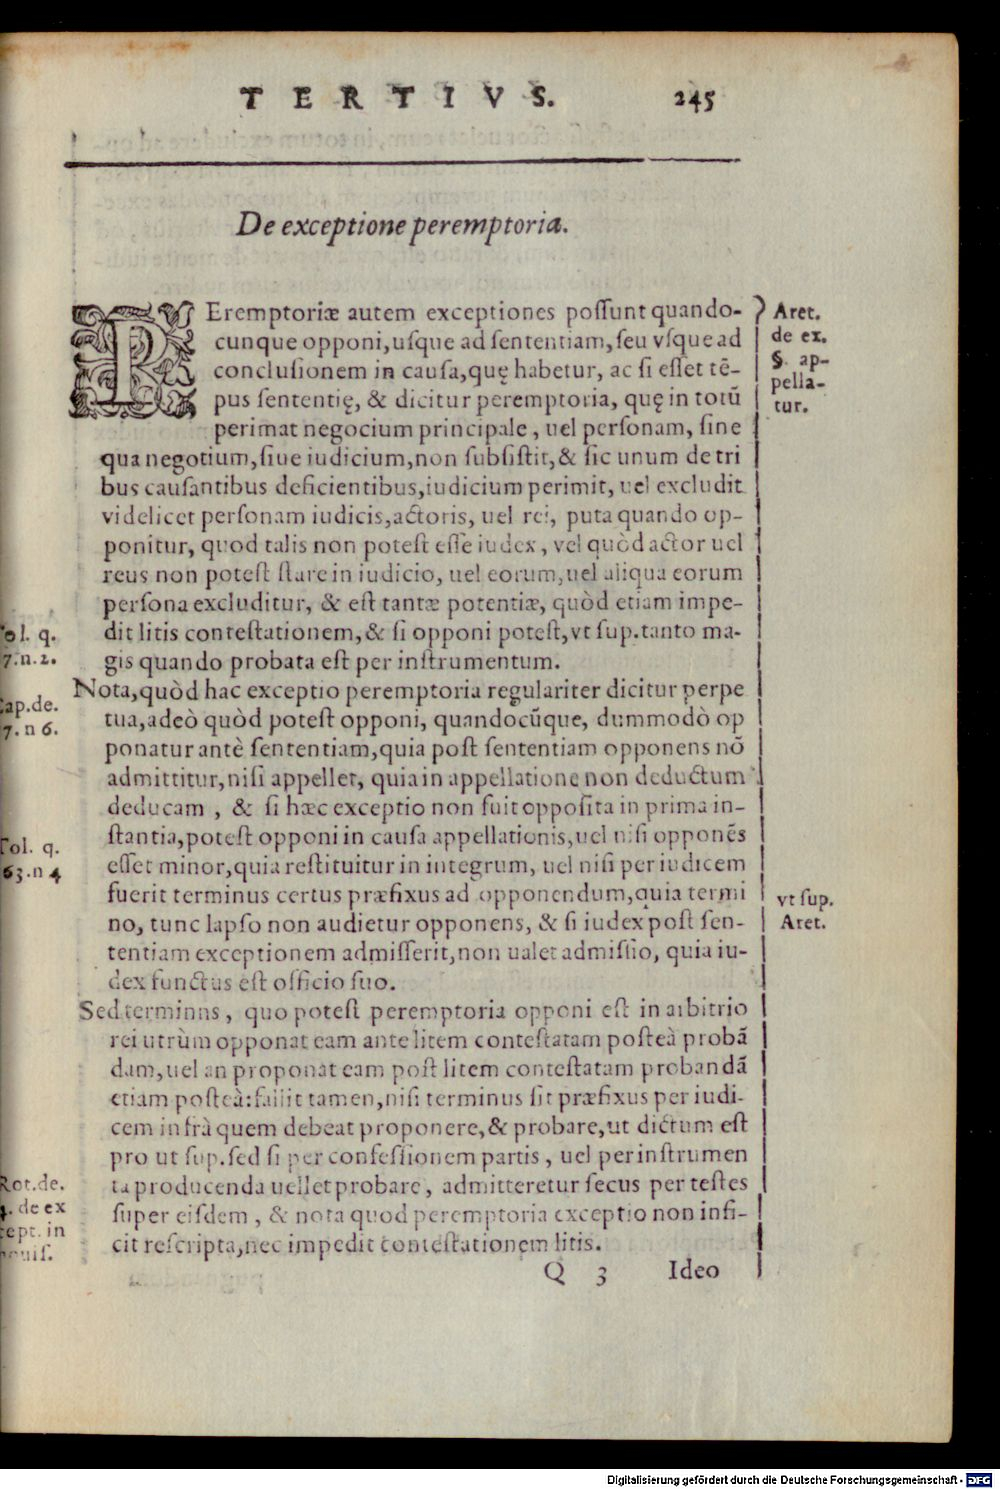 TERTIVS. 245
De exceptione peremptoria.
PEremptoriæ autem exceptiones possunt quando-
cunque opponi, usque ad sententiam, seu vsque ad
conclusionem in causa, quę habetur, ac si esset tē-
pus sententię, & dicitur peremptoria, quę in totū
perimat negocium principale, uel personam, sine
qua negotium, siue iudicium, non subsistit, & sic unum de tri
bus causantibus deficientibus, iudicium perimit, uel excludit
videlicet personam iudicis, actoris, uel rei, puta quando op-
ponitur, quod talis non potest esse iudex, vel quòd actor uel
reus non potest stare in iudicio, uel eorum, uel aliqua eorum
persona excluditur, & est tantæ potentiæ, quòd etiam impe-
dit litis contestationem, & si opponi potest, vt sup. tanto ma-
gis quando probata est per instrumentum.
Nota, quòd hac exceptio peremptoria regulariter dicitur perpe
tua, adeò quòd potest opponi, quandocūque, dummodò op
ponatur antè sententiam, quia post sententiam opponens nō
admittitur, nisi appellet, quia in appellatione non deductum
deducam, & si hæc exceptio non fuit opposita in prima in-
stantia, potest opponi in causa appellationis, uel nisi opponēs
esset minor, quia restituitur in integrum, uel nisi per iudicem
fuerit terminus certus præfixus ad opponendum, quia termi
no, tunc lapso non audietur opponens, & si iudex post sen-
tentiam exceptionem admisserit, non ualet admissio, quia iu-
dex functus est officio suo.
Sed terminus, quo potest peremptoria opponi est in arbitrio
rei utrùm opponat eam ante litem contestatam posteà probā
dam, uel an proponat eam post litem contestatam probandā
etiam posteà: fallit tamen, nisi terminus sit præfixus per iudi-
cem infrà quem debeat proponere, & probare, ut dictum est
pro ut sup. sed si per confessionem partis, uel per instrumen
ta producenda uellet probare, admitteretur secus per testes
super eisdem, & nota quod peremptoria exceptio non infi-
cit rescripta, nec impedit contestationem litis.
Q 3 Ideo
Aret.
de ex.
§. ap-
pella-
tur.
vt sup.
Aret.
ol. q.
7.n.2.
ap.de.
7. n 6.
Tol. q.
63.n 4
Rot.de.
4. de ex
cept. in
nouis.
Digitalisierung gefördert durch die Deutsche Forschungsgemeinschaft - DFG